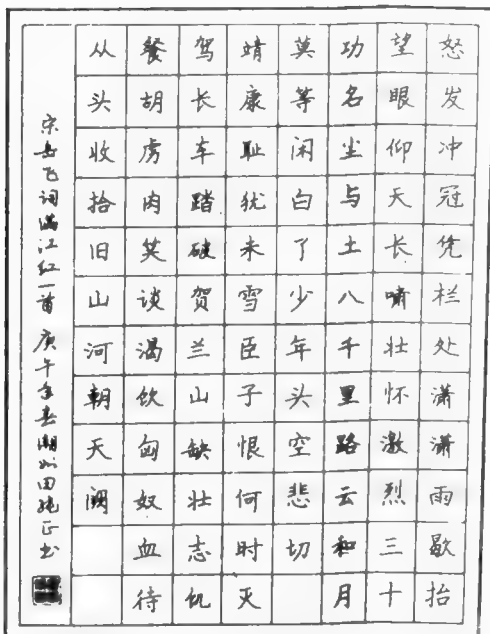 怒发冲冠凭栏处潇潇雨歇抬
望眼仰天长啸壮怀激烈三十
功名尘与土八千里路云和月
莫等闲白了少年头空悲切
靖康耻犹未雪臣子恨何时灭
驾长车踏破贺兰山缺壮志饥
餐胡虏肉笑谈渴饮匈奴血待
从头收拾旧山河朝天阙
宋岳飞词满江红一首 庚午春田正书